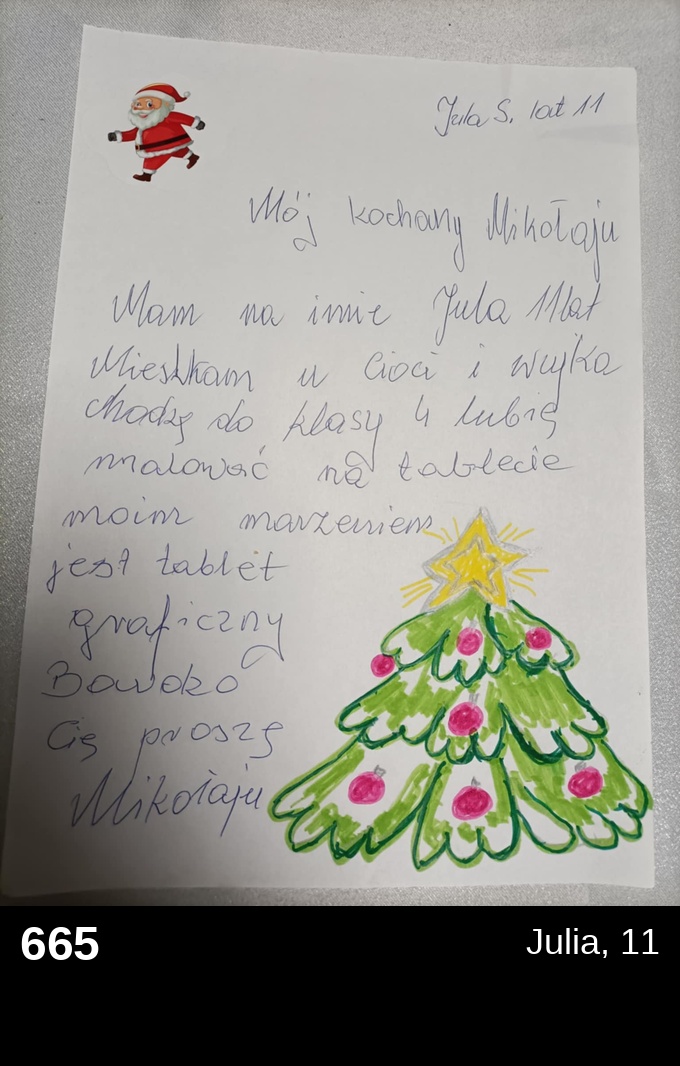 Jula S. lat 11
Mój kochany Mikołaju
Mam na imie Jula 11lat
Mieszkam u cioci i wujka
chodzę do klasy 4 lubię
malować na tablecie
moim marzeniem
jest tablet
graficzny
Bowdzo
Cię proszę
Mikołaju
665
Julia, 11